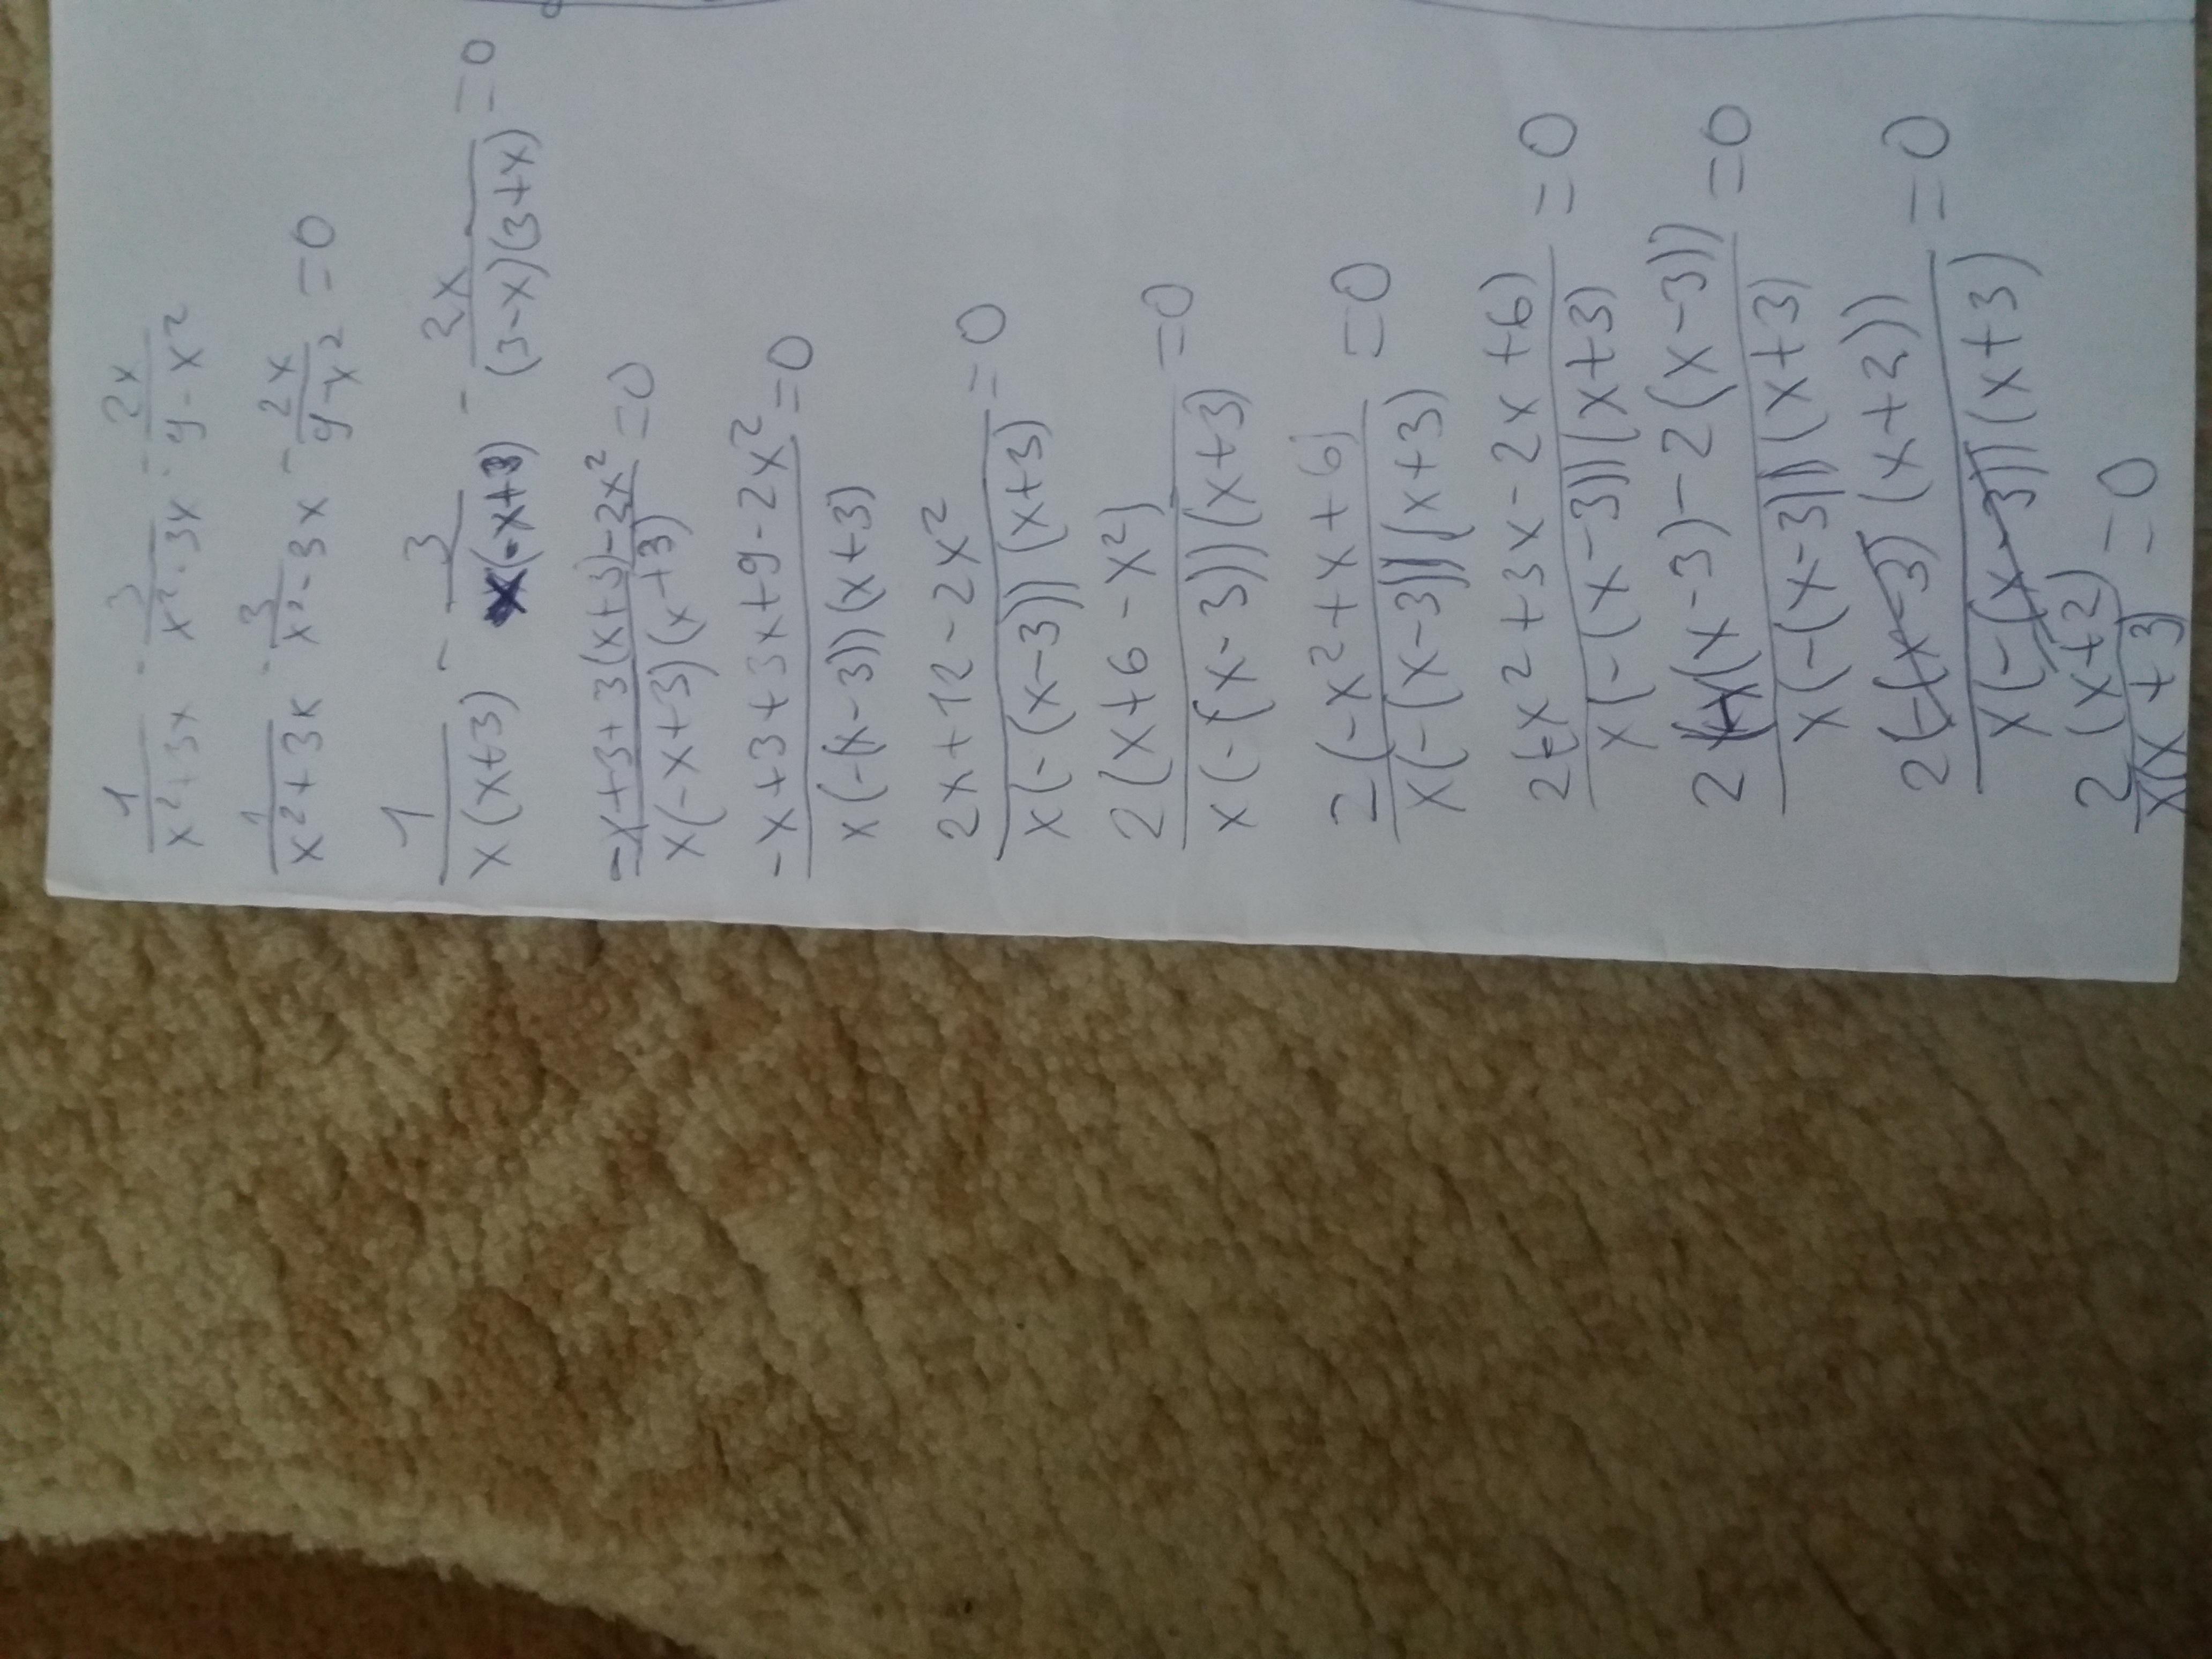 1/(x²+3x) - 3/(x²-3x) - 2x/(9-x²)
1/(x²+3x) - 3/(x²-3x) - 2x/(9-x²) =0
1/(x(x+3)) - 3/(x(-x+3)) - 2x/((3-x)(3+x)) =0
(-x+3+3(x+3)-2x²)/(x(-x+3)(x+3)) =0
(-x+3+3x+9-2x²)/(x(-(x-3))(x+3)) =0
(2x+12-2x²)/(x(-(x-3))(x+3)) =0
2(x+6-x²)/(x(-(x-3))(x+3)) =0
2(-x²+x+6)/(x(-(x-3))(x+3)) =0
2(-x²+3x-2x+6)/(x(-(x-3))(x+3)) =0
2(-x(x-3)-2(x-3))/(x(-(x-3))(x+3) =0
2(-(x-3)(x+2))/(x(-(x-3))(x+3) =0
2(x+2)/(x(x+3 =0